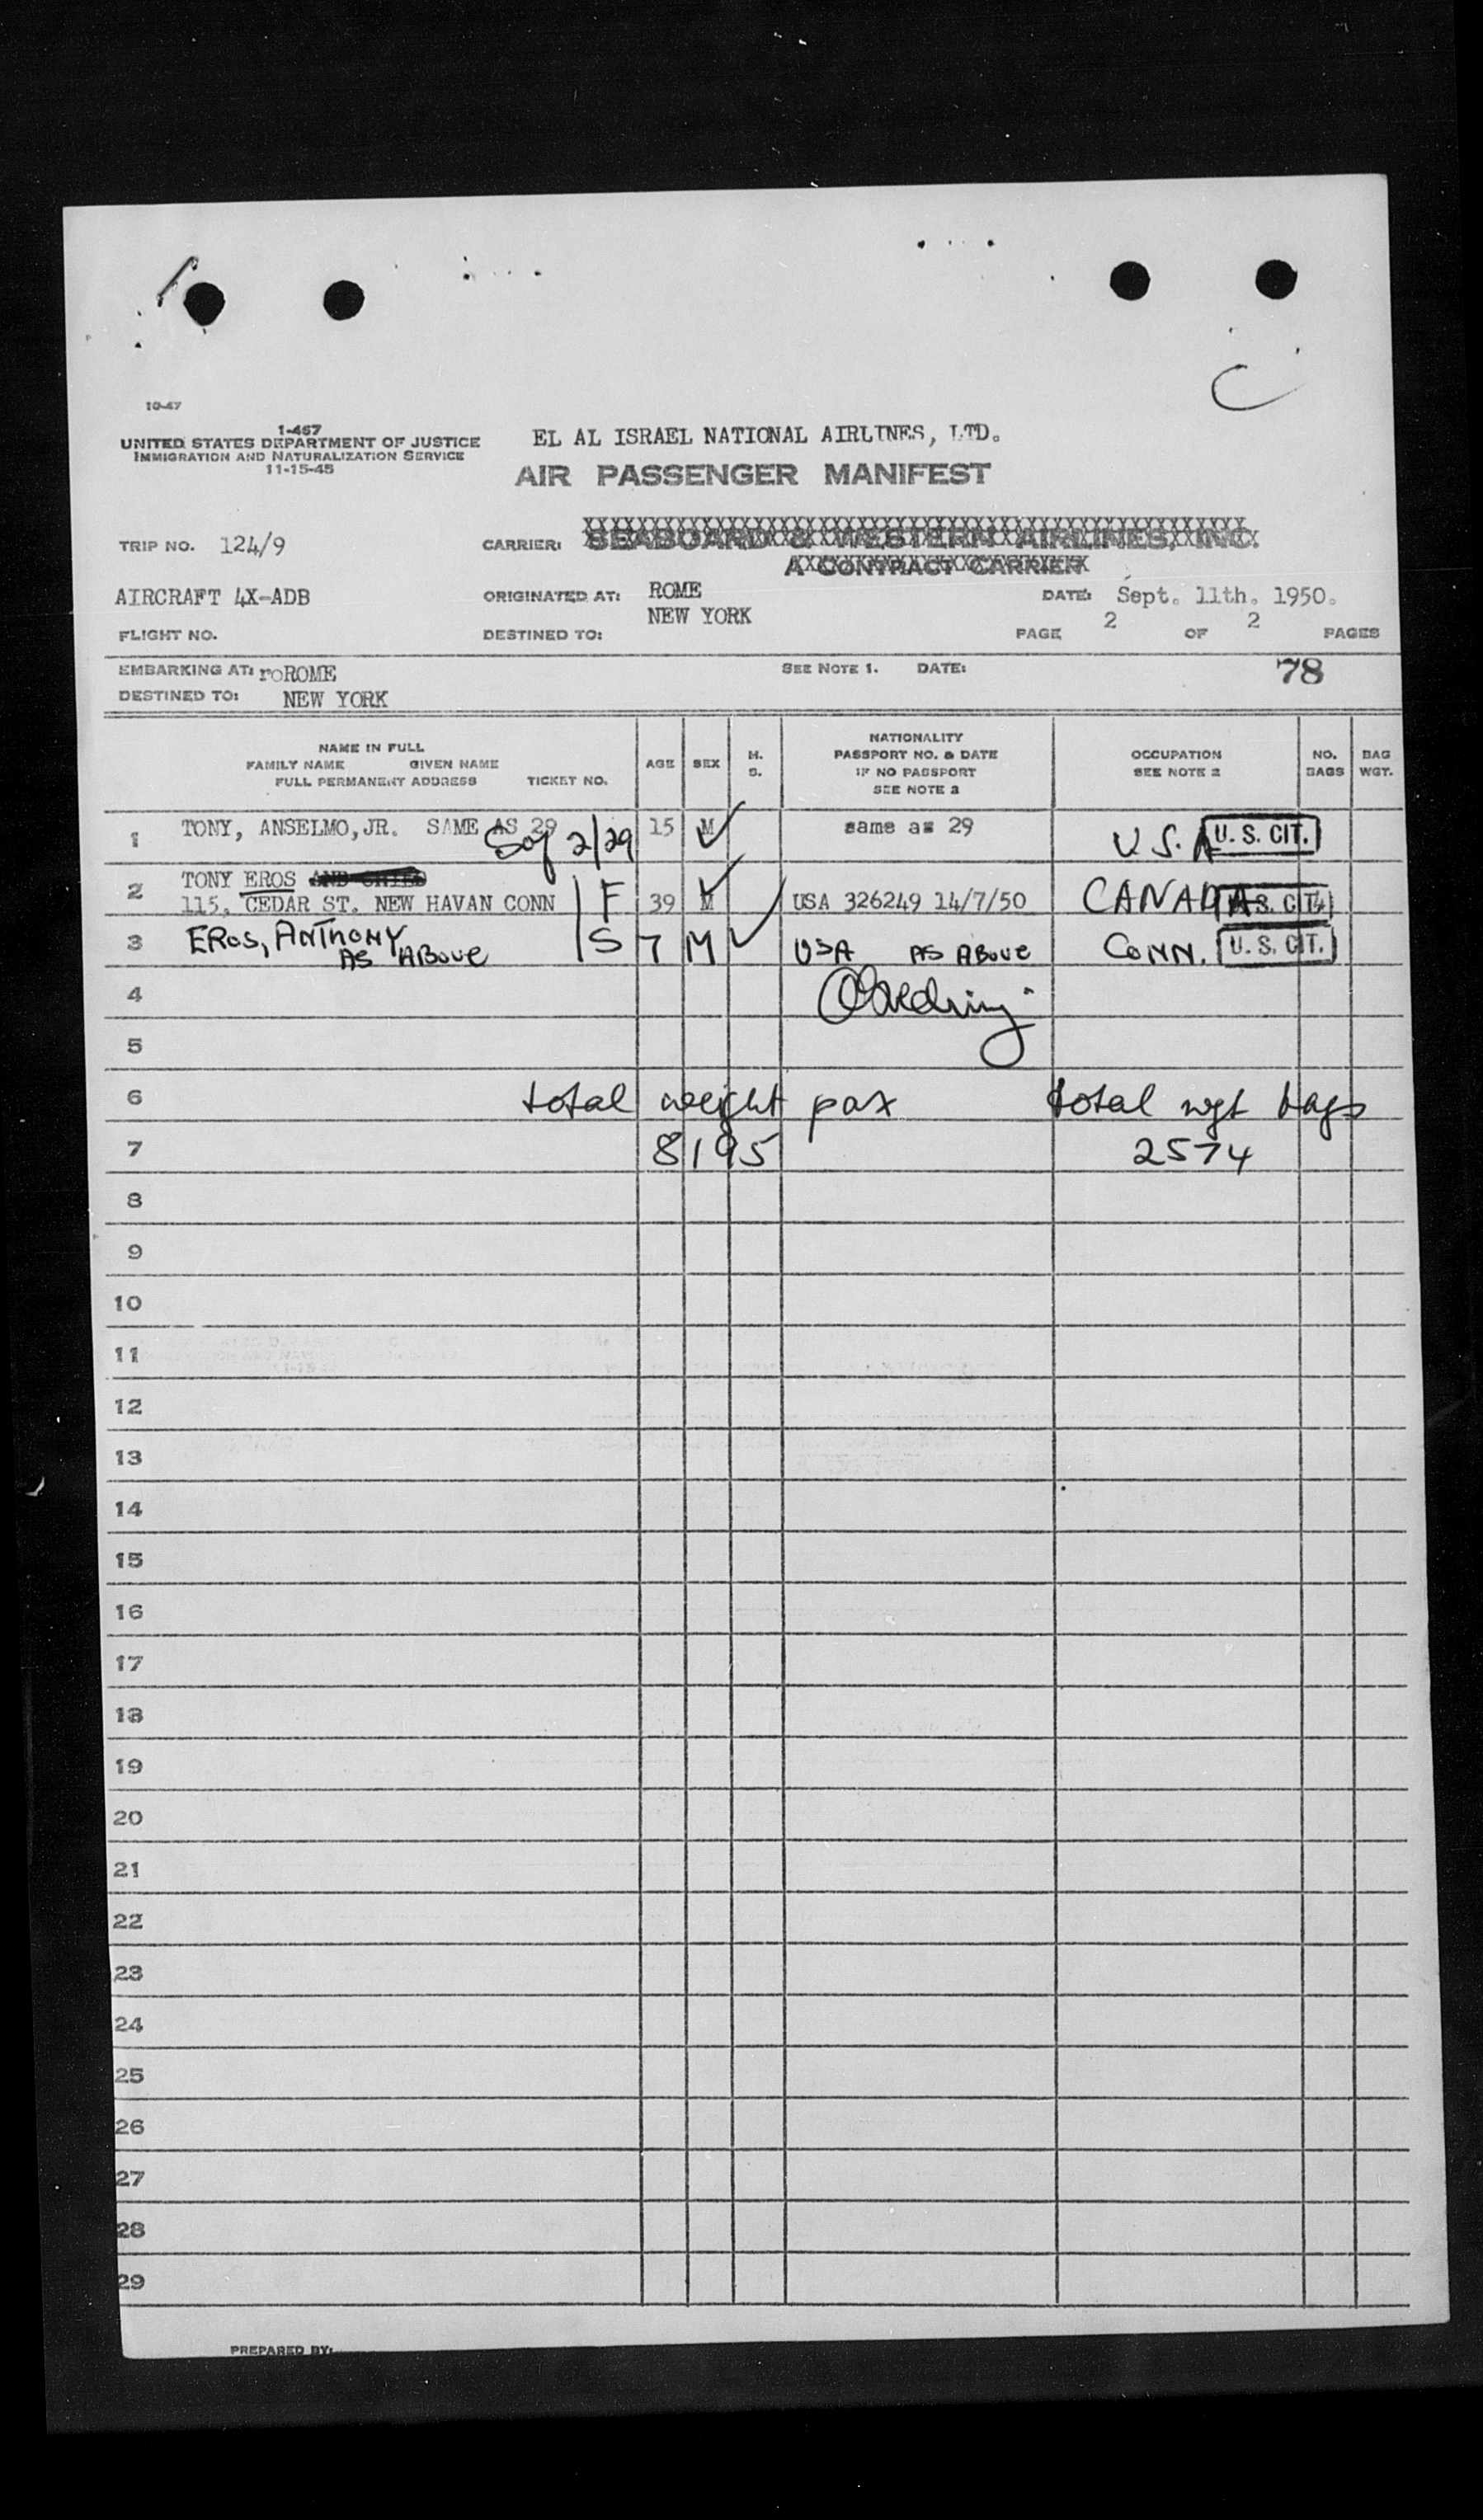 10-47
1-467
UNITED STATES DEPARTMENT OF JUSTICE
IMMIGRATION AND NATURALIZATION SERVICE
11-15-45
EL AL ISRAEL NATIONAL AIRLINES, LTD.
AIR PASSENGER MANIFEST
TRIP NO. 124/9 CARRIER: SEABOARD & WESTERN AIRLINES, INC.
A CONTRACT CARRIER
AIRCRAFT 4X-ADB ORIGINATED AT: ROME DATE: Sept. 11th. 1950.
FLIGHT NO. DESTINED TO: NEW YORK PAGE 2 OF 2 PAGES
EMBARKING AT: roROME SEE NOTE 1. DATE: 78
DESTINED TO: NEW YORK
NAME IN FULL
FAMILY NAME GIVEN NAME
FULL PERMANENT ADDRESS TICKET NO.
AGE
SEX
H.
S.
NATIONALITY
PASSPORT NO. & DATE
IF NO PASSPORT
SEE NOTE 3
OCCUPATION
SEE NOTE 2
NO.
BAGS
BAG
WGT.
1 TONY, ANSELMO, JR. SAME AS 29 2/29 15 M same as 29 U.S.A U. S. CIT.
2 TONY EROS AND CHILD
115, CEDAR ST. NEW HAVAN CONN F 39 M USA 326249 14/7/50 CANADA U. S. CIT.
3 EROS, ANTHONY S 7 M USA AS ABOVE CONN. U. S. CIT.
AS ABOVE
4
5
6 total weight pax total wgt bags
7 8195 2574
8
9
10
11
12
13
14
15
16
17
18
19
20
21
22
23
24
25
26
27
28
29
PREPARED BY: